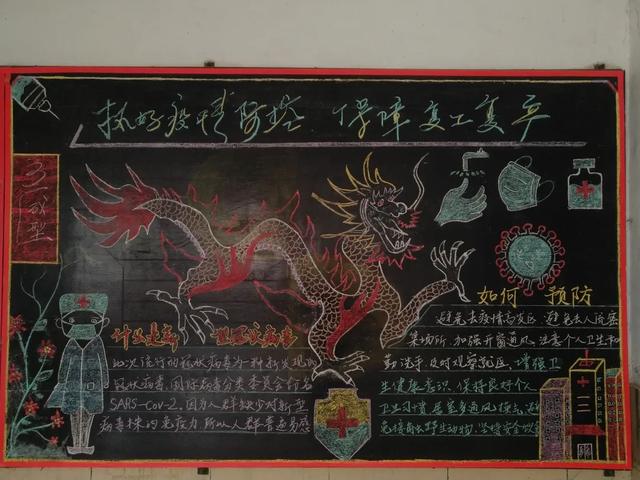 抓好疫情防控、保障复工复产
三成型
什么是新型冠状病毒
如何 预防
此次流行的冠状病毒为一种新发现的
冠状病毒，国际病毒分类委员会命名
SARS-Cov-2，因为人群缺少对新型
病毒株的免疫力，所以人群普遍易感
避免去疫情高发区，避免去人流密
集场所，加强开窗通风，注意个人卫生和
勤洗手，及时观察就医，增强卫
生健康意识，保持良好个人
卫生习惯
野生动物，坚持安全饮食